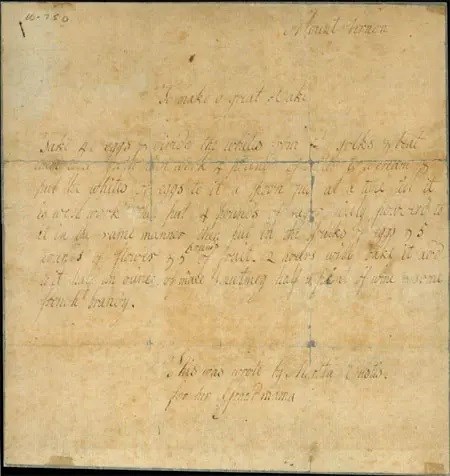 W-750
Mount Vernon
To make a great Cake
Take 40 eggs & divide the whites from the yolks & beat
them to a froth then work 4 pounds of butter to a cream &
put the whites of eggs to it a spoon full at a time till it
is well work'd then put 4 pounds of sugar finely powdered to
it in the same manner then put in the yolks of eggs & 5
pounds of flower & 5 pounds of fruit. 2 hours will bake it add
to it half an ounce of mace & nutmeg half a pint of wine & some
french brandy.
This was wrote by Martha Custis
for her Grandmama